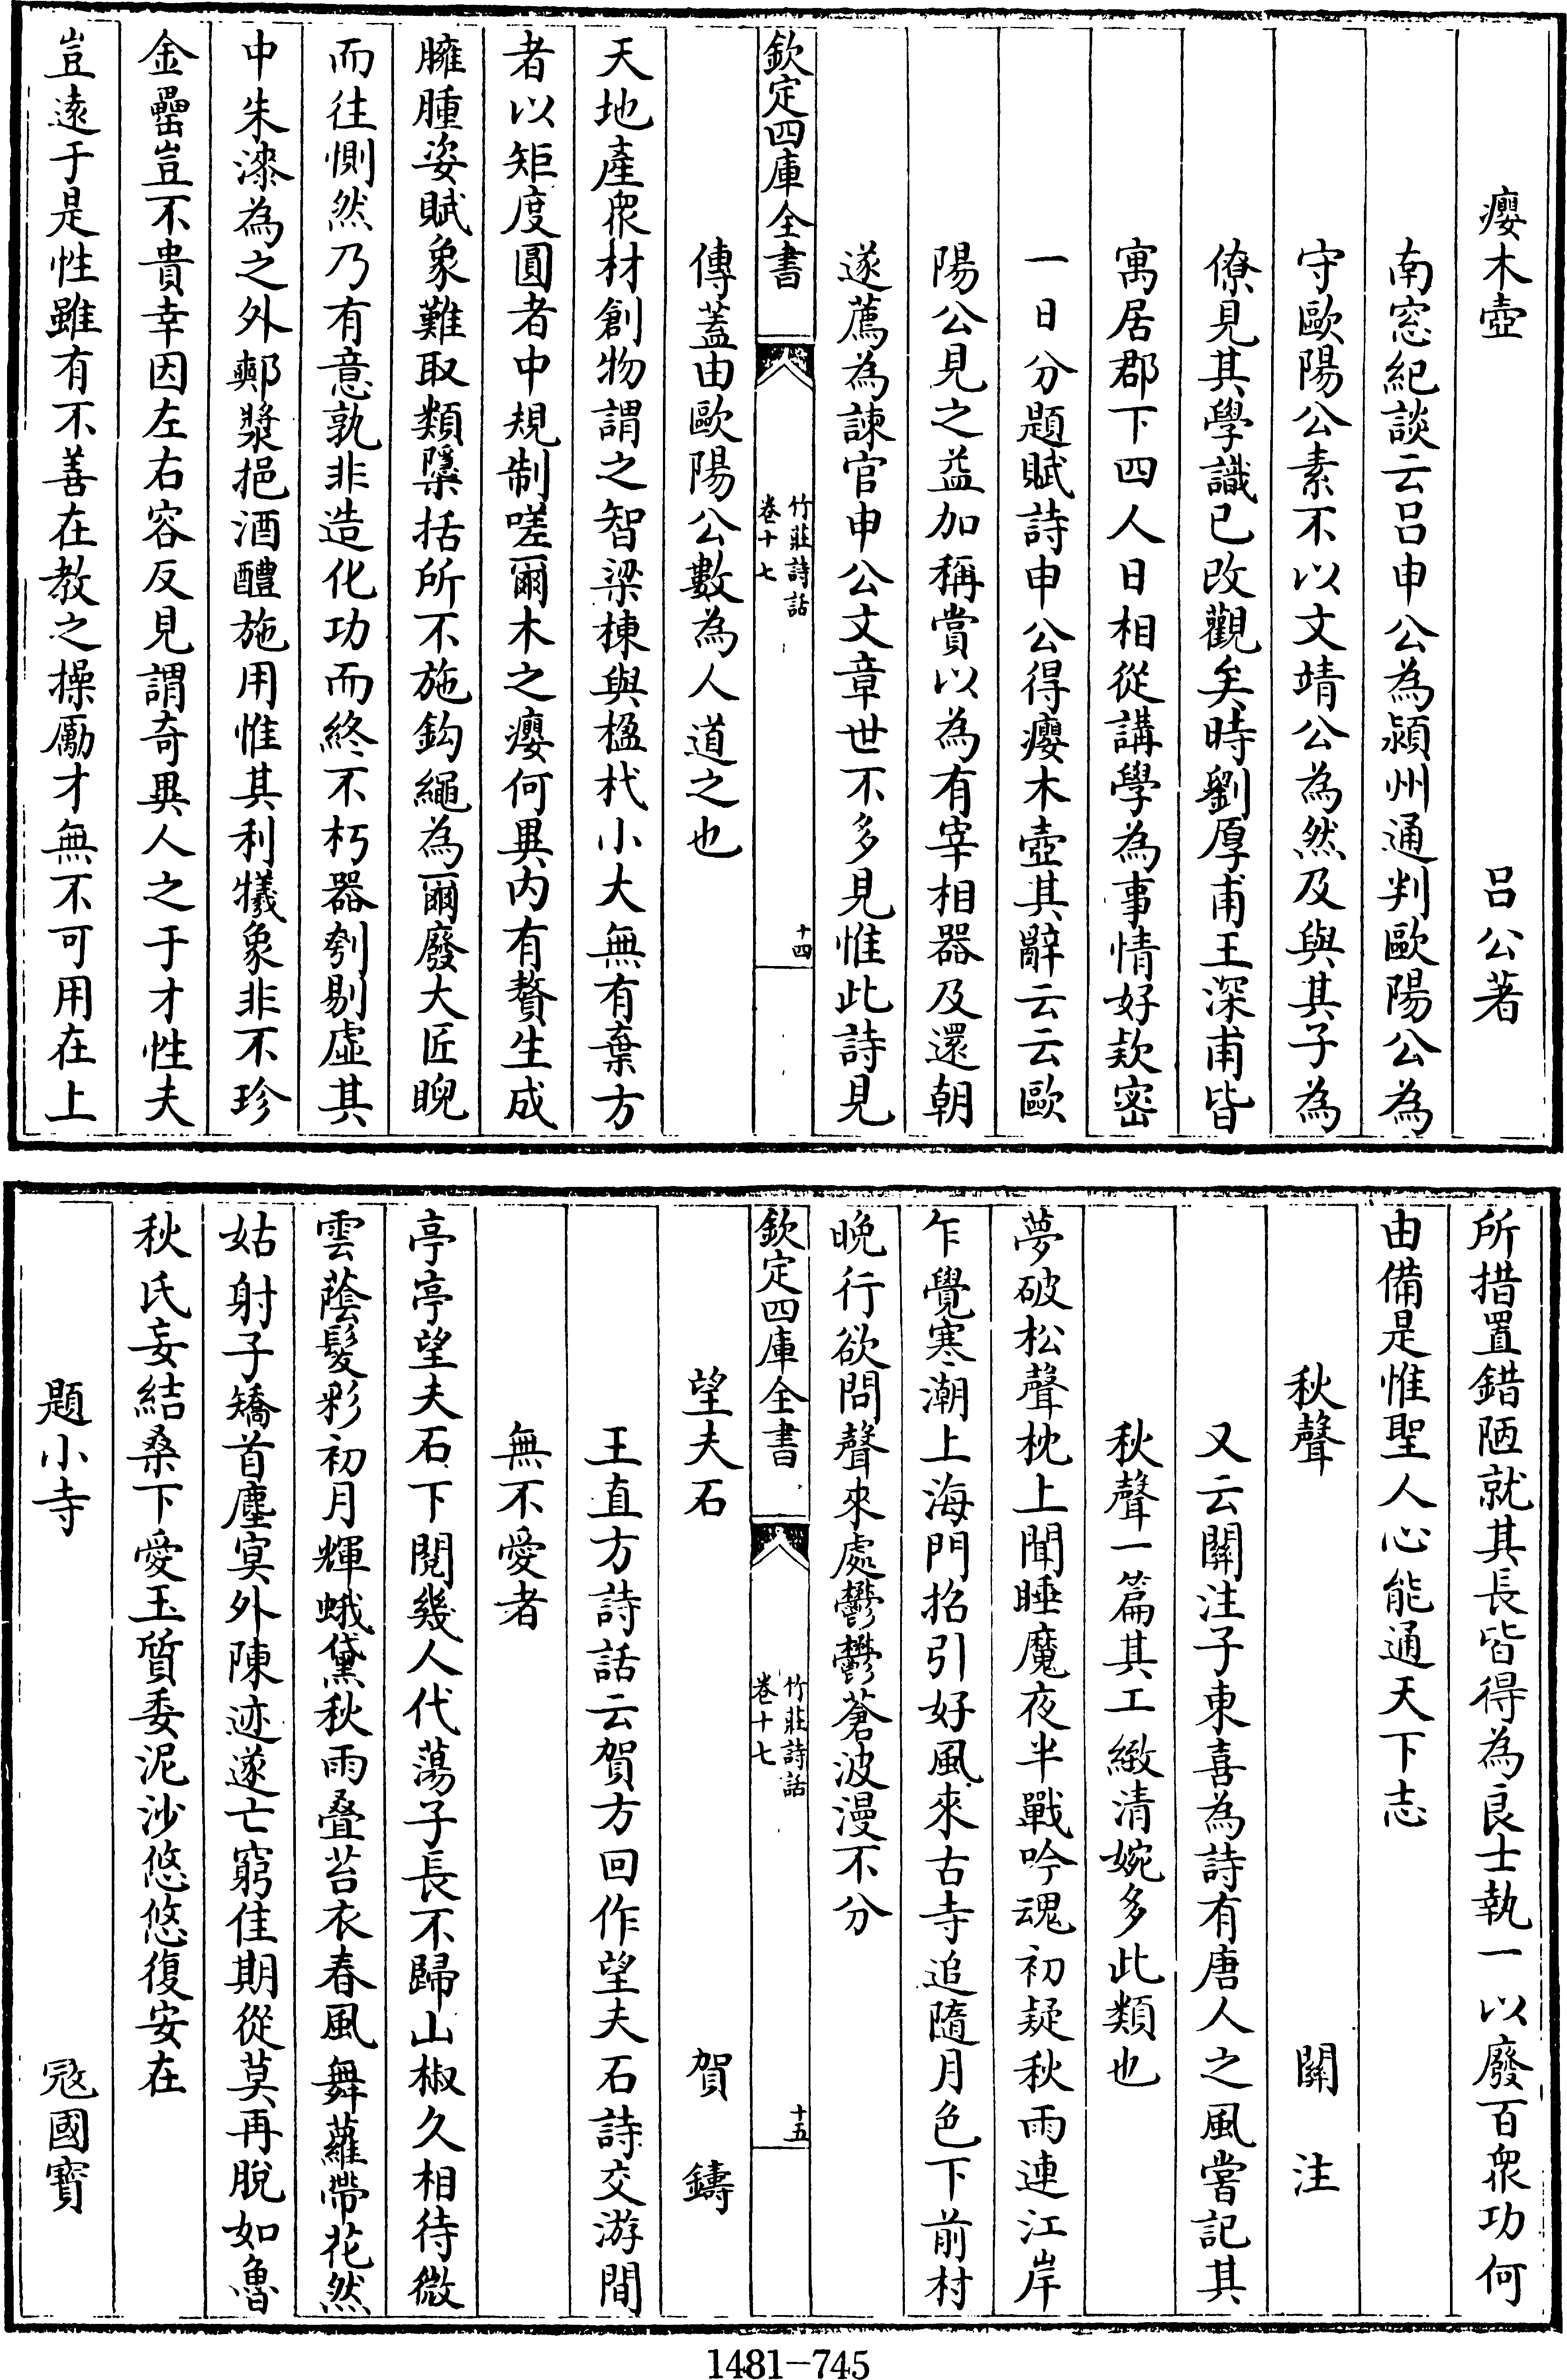 癭木壺　吕公著
南窓紀談云吕申公為潁州通判歐陽公為
守歐陽公素不以文靖公為然及與其子為
僚見其學識已改觀矣時劉厚甫王深甫皆
寓居郡下四人日相從講學為事情好欵密
一日分題賦詩申公得癭木壺其辭云云歐
陽公見之益加稱賞以為有宰相器及還朝
遂薦為諫官申公文章世不多見惟此詩見
欽定四庫全書
竹莊詩話
卷十七
十四
傳蓋由歐陽公數為人道之也
天地產衆材創物謂之智梁棟與楹杙小大無有棄方
者以矩度圓者中規制嗟爾木之癭何異内有贅生成
臃腫姿賦象難取類檃括所不施鈎繩為爾廢大匠睨
而往惻然乃有意孰非造化功而終不朽器刳剔虛其
中朱漆為之外鄴漿挹酒醴施用惟其利犧象非不珍
金罍豈不貴幸因左右容反見謂奇異人之于才性夫
豈遠于是性雖有不善在教之操勵才無不可用在上
所措置錯陋就其長皆得為良士執一以廢百衆功何
由備是惟聖人心能通天下志
秋聲　關注
又云關注子東喜為詩有唐人之風嘗記其
秋聲一篇其工緻清婉多此類也
夢破松聲枕上聞睡魔夜半戰吟魂初疑秋雨連江岸
乍覺寒潮上海門招引好風來古寺追隨月色下前村
晚行欲問聲來處鬱鬱蒼波漫不分
欽定四庫全書
竹莊詩話
卷十七
十五
望夫石　賀鑄
王直方詩話云賀方回作望夫石詩交游間
無不愛者
亭亭望夫石下閱幾人代蕩子長不歸山椒久相待微
雲蔭髮彩初月輝蛾黛秋雨叠苔衣春風舞蘿帶花然
姑射子矯首塵寞外陳迹遂亡窮佳期從莫再脫如魯
秋氏妄結桑下愛玉質委泥沙悠悠復安在
題小寺　寇國寳
1481-745